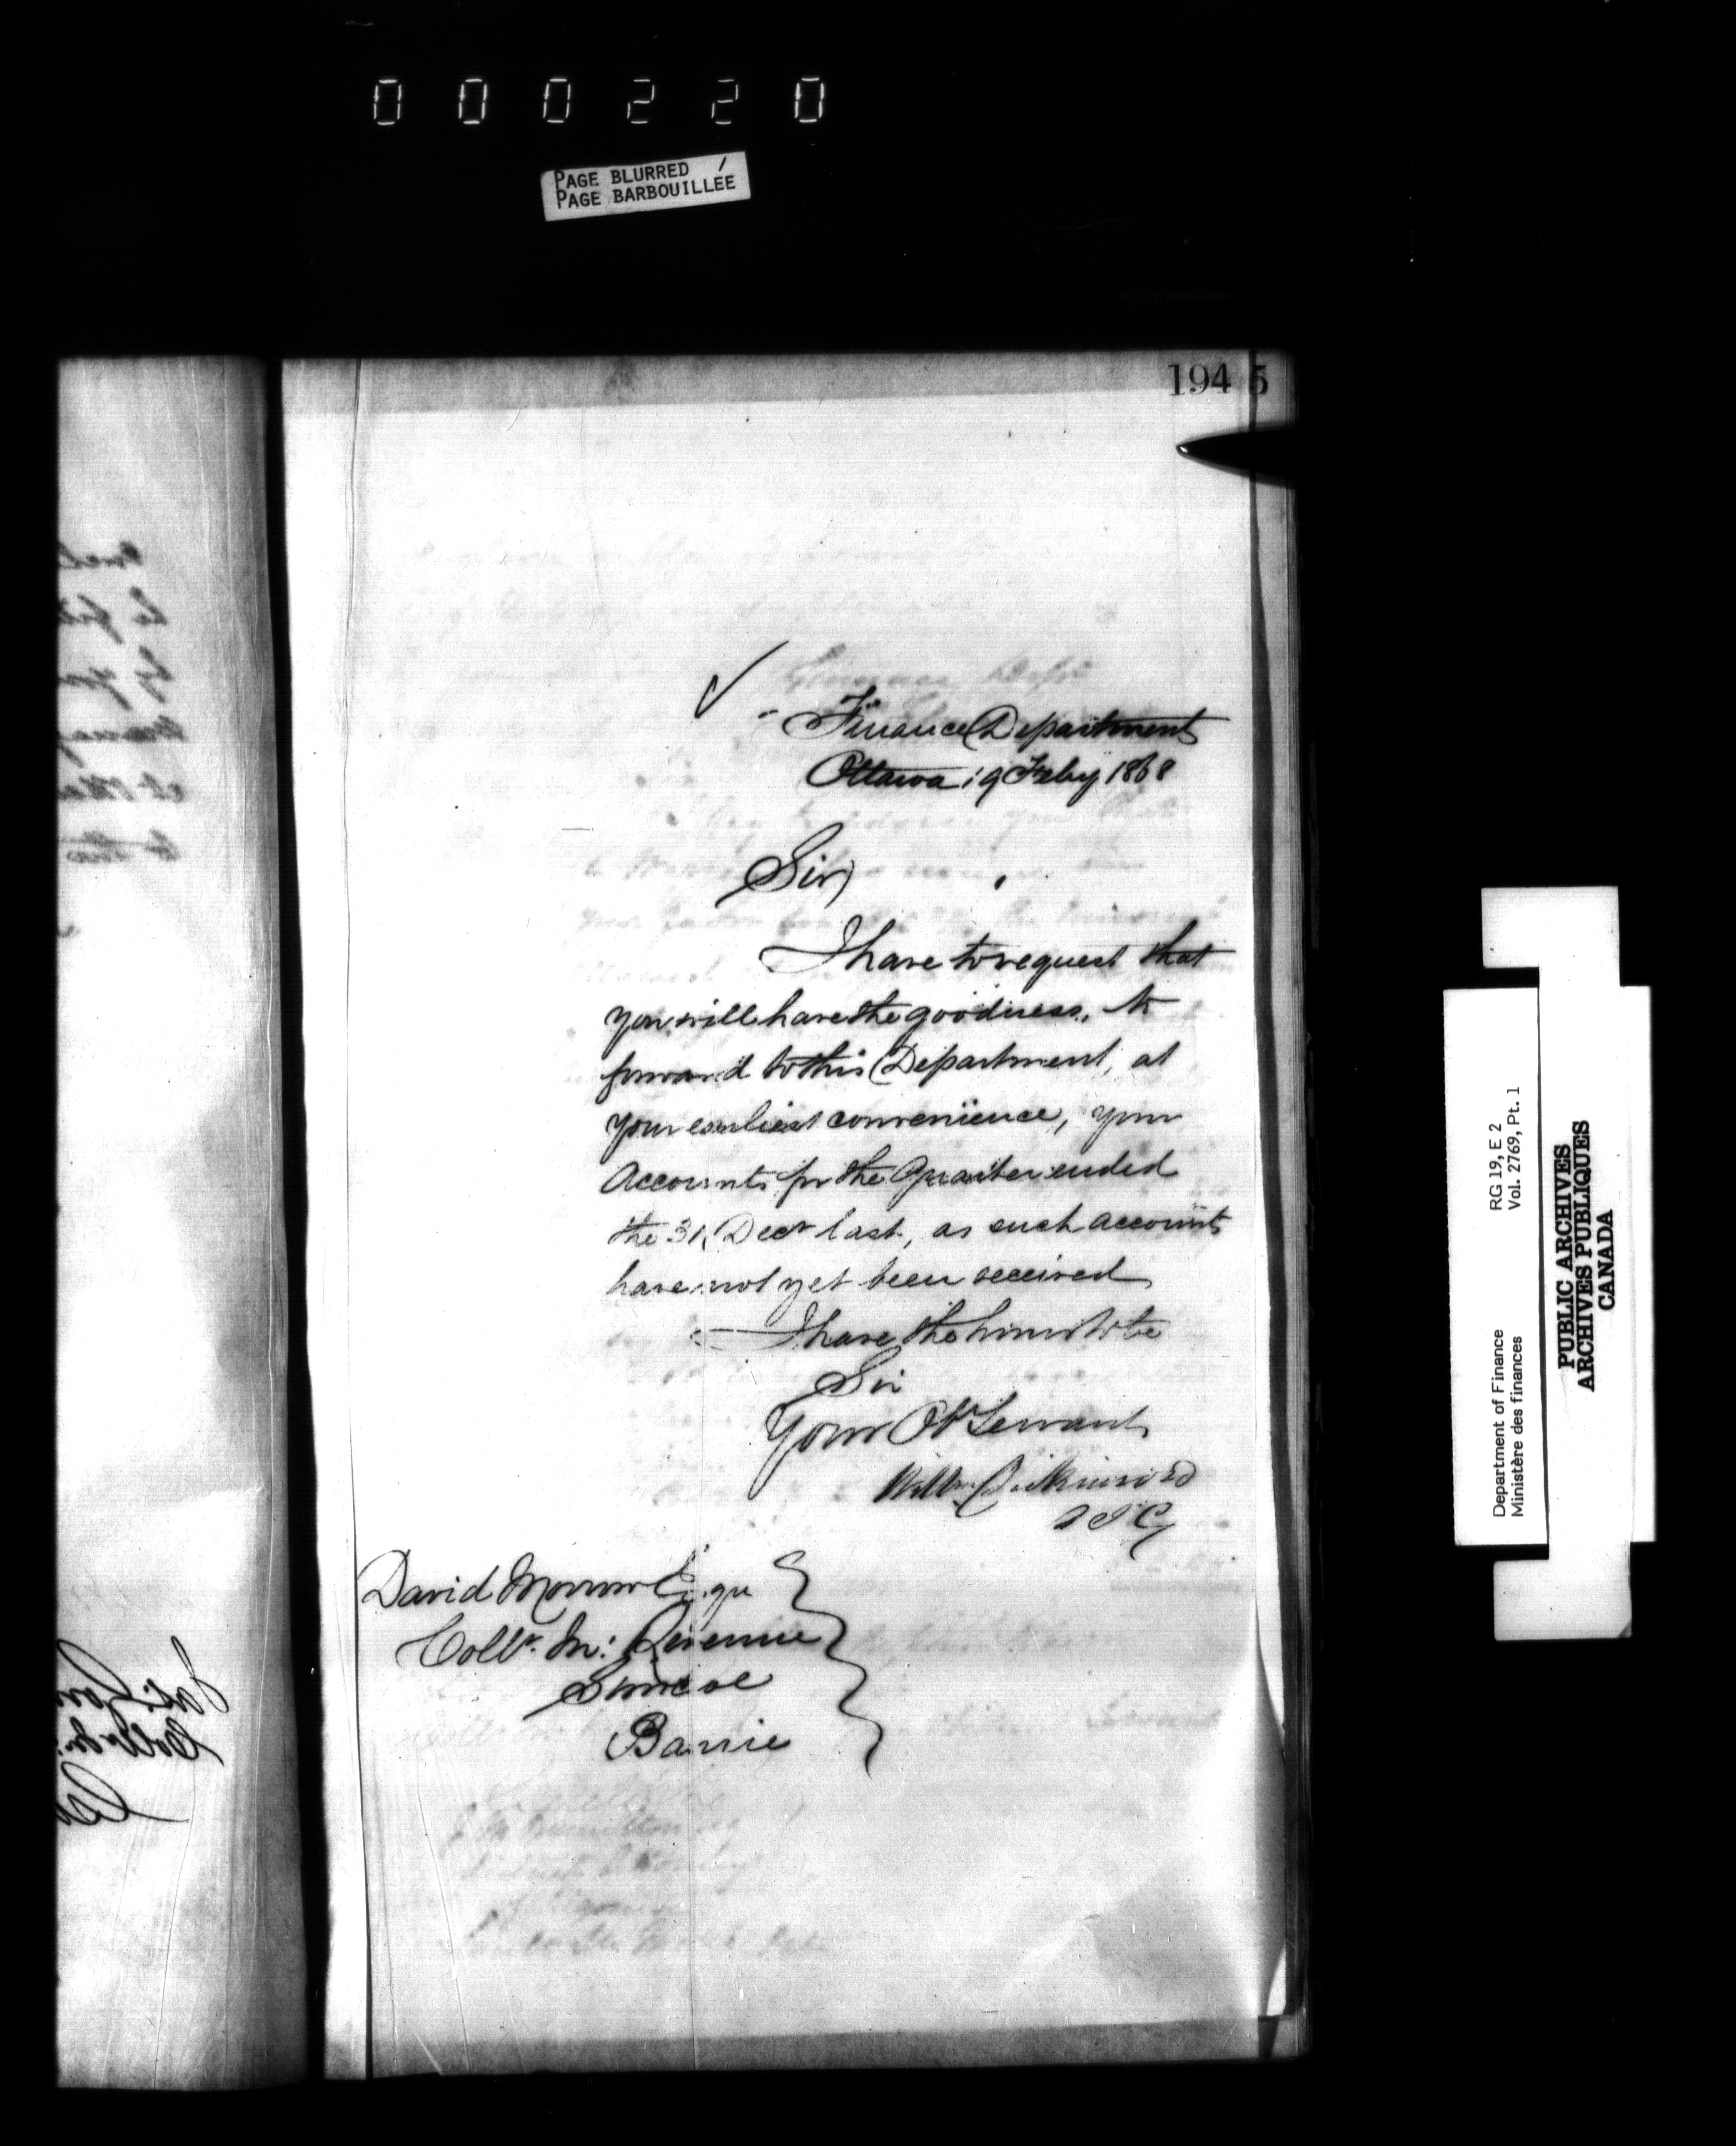 000220
PAGE BLURRED
PAGE BARBOUILLÉE
194 5
Finance Department
Ottawa 19 Feby 1868
Sir
I have to request that
you will have the goodness, to
forward to this Department, at
your earliest convenience, your
Accounts for the Quarter ended
the 31, Decr last, as such accounts
have not yet been received
I have the honor to be
Sir
Your Obt Servant
Willm Dickinson
D I G
David Morrow Esqu
Collr. In: Revenue
Simcoe
Barrie
Department of Finance
Ministère des finances
RG 19, E 2
Vol. 2769, Pt. 1
PUBLIC ARCHIVES
ARCHIVES PUBLIQUES
CANADA